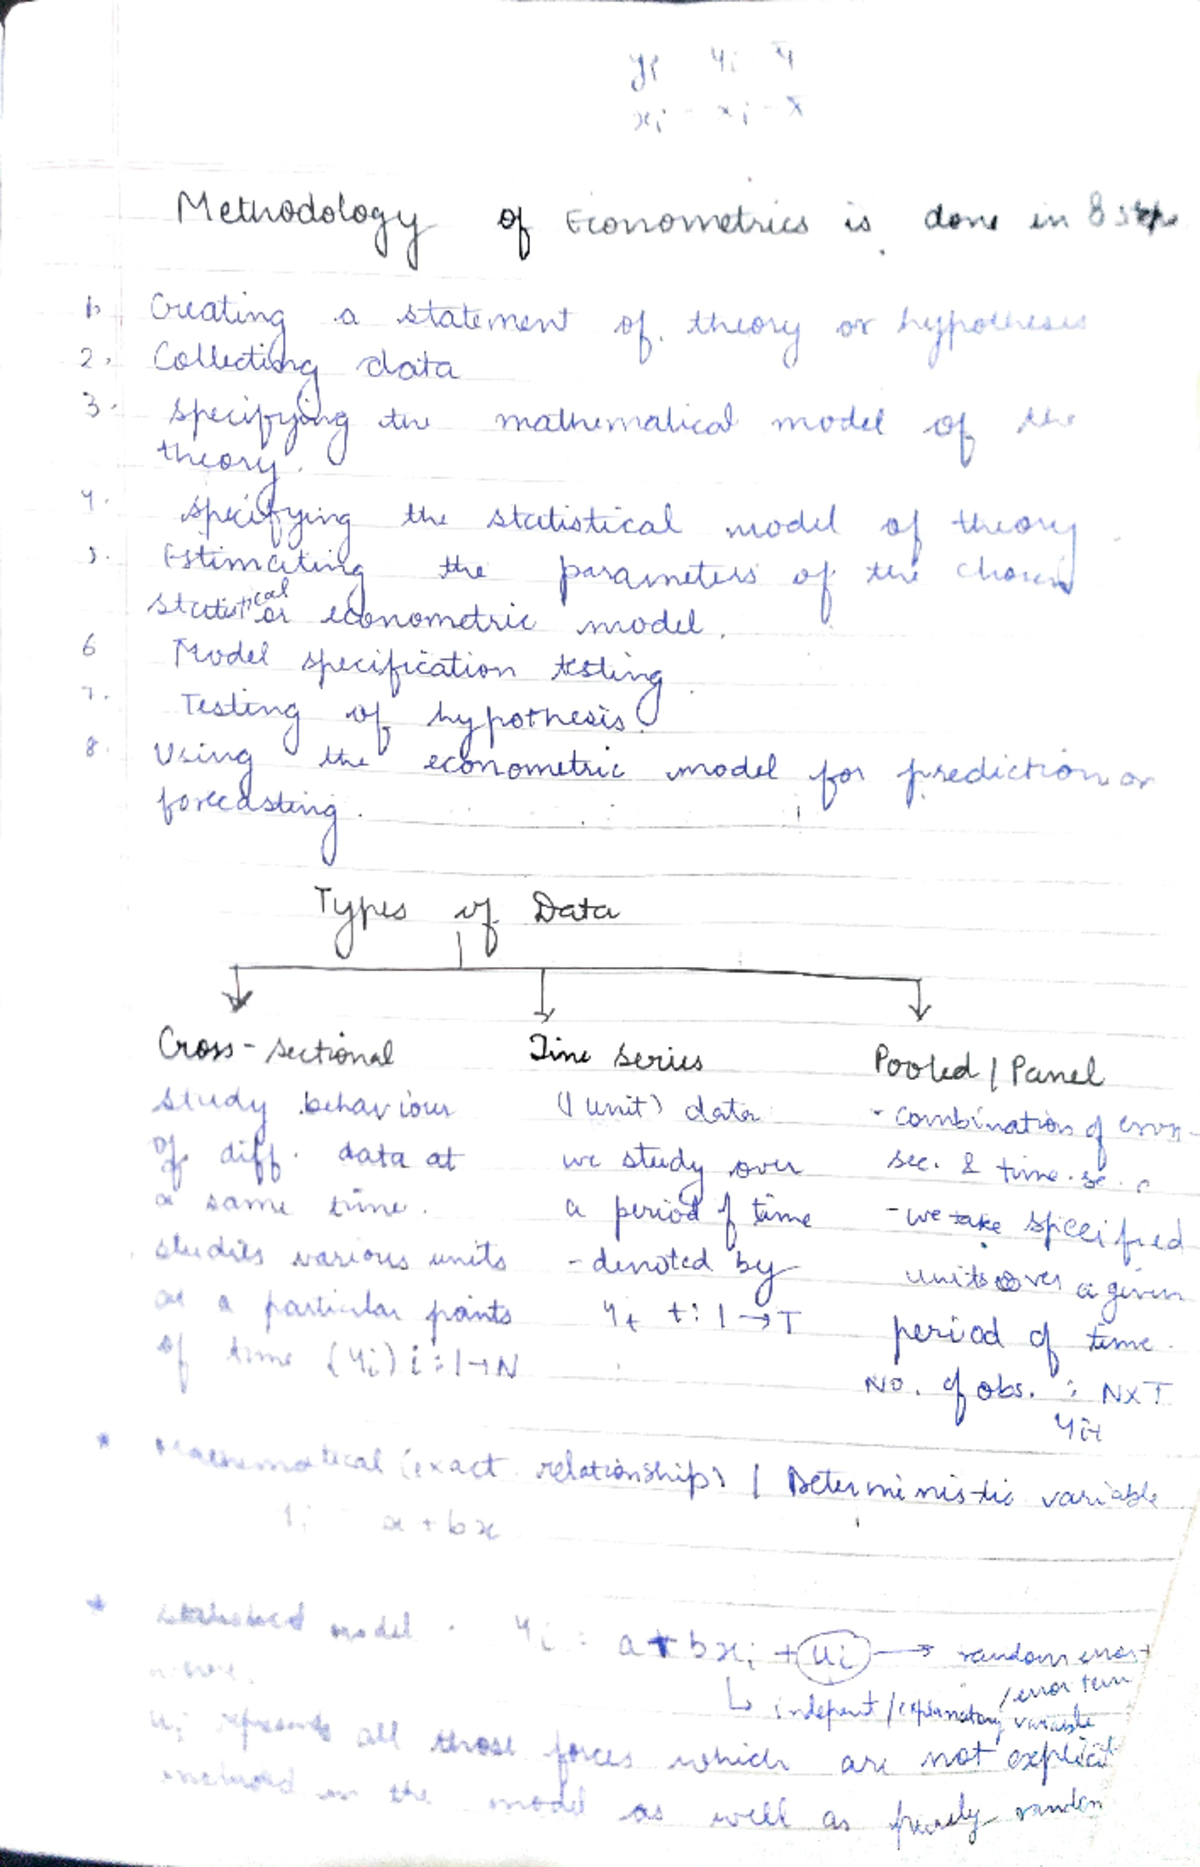 yi yi ȳ
xi - xi - x̄
Methodology of Econometrics is done in 8 steps
1. Creating a statement of theory or hypothesis
2. Collecting data
3. specifying the mathematical model of the
theory.
4. specifying the statistical model of theory.
5. Estimating the parameters of the chosen
statistical or econometric model.
6 Model specification testing.
7. Testing of hypothesis.
8. Using the econometric model for prediction or
forecasting.
Types of Data
Cross-sectional
study behaviour
of diff. data at
a same time.
studies various units
at a particular points
of time (Yi) i:1→N
Time series
(1 unit) data
we study over
a period of time
- denoted by
Yt t:1→T
Pooled / Panel
- combination of cross-
sec. & time.se.
- we take specified
units over a given
period of time.
No. of obs. : N×T
Yit
* Mathematical (exact relationship) / Deterministic variable
a + bx
* statistical model. Yi = a + bxi + ui → random error
/ error term
↳ indepent / explanatory variable
ui represents all those forces which are not explicit
included in the model as well as purely random